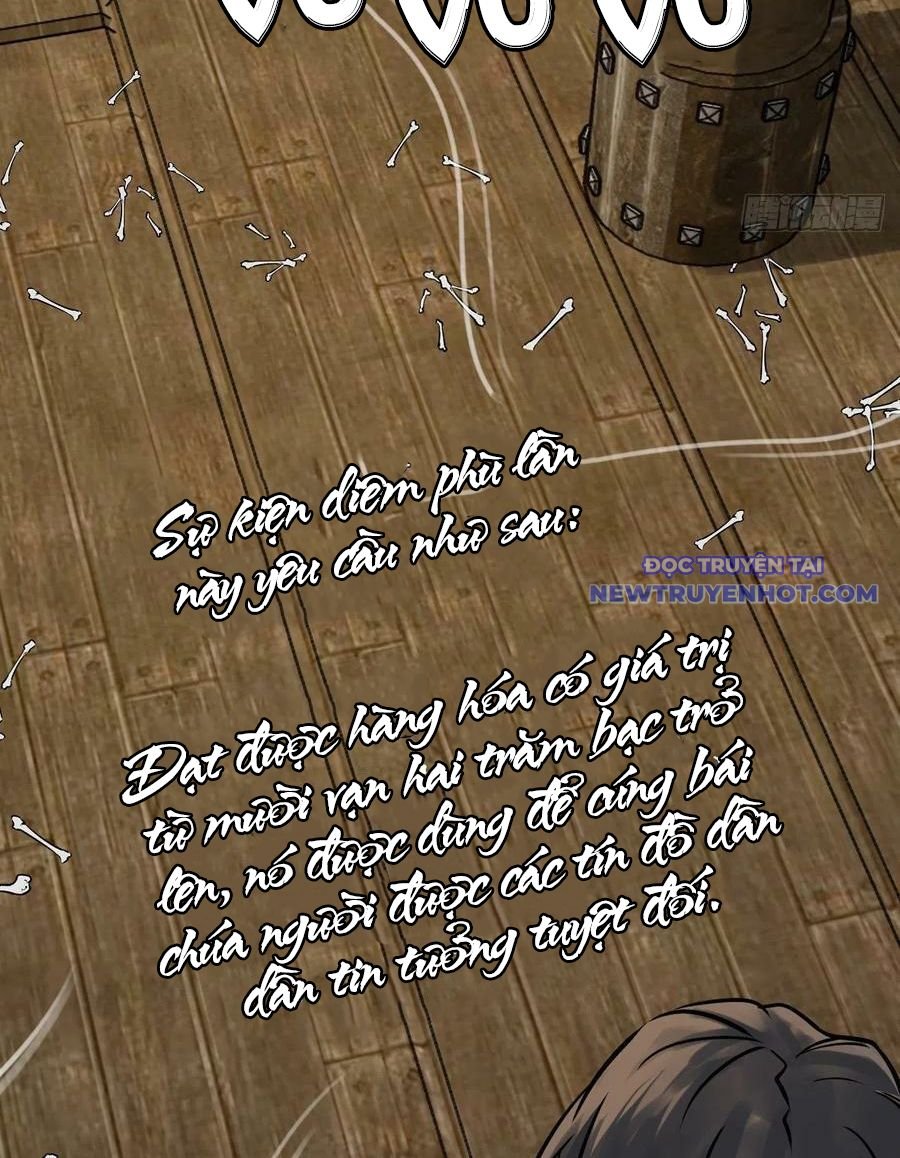 VÙ VÙ VÙ
腾讯动漫
Sự kiện diêm phù lần
này yêu cầu như sau:
ĐỌC TRUYỆN TẠI
NEWTRUYENHOT.COM
Đạt được hàng hóa có giá trị
từ mười vạn hai trăm bạc trở
lên, nó được dùng để cúng bái
chúa người được các tín đồ dần
dần tin tưởng tuyệt đối.